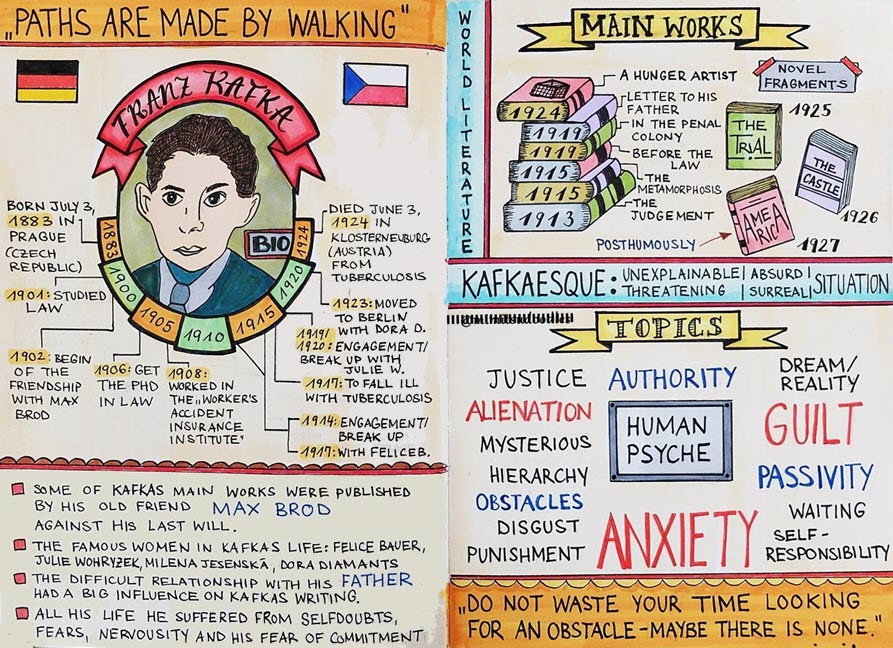 „PATHS ARE MADE BY WALKING"
FRANZ KAFKA
BIO
1883
1900
1905
1910
1915
1920
1924
BORN JULY 3,
1883 IN
PRAGUE
(CZECH
REPUBLIC)
1901: STUDIED
LAW
1902: BEGIN
OF THE
FRIENDSHIP
WITH MAX
BROD
1906: GET
THE PHD
IN LAW
1908:
WORKED IN
THE „WORKER'S
ACCIDENT
INSURANCE
INSTITUTE"
DIED JUNE 3,
1924 IN
KLOSTERNEUBURG
(AUSTRIA)
FROM
TUBERCULOSIS
1923: MOVED
TO BERLIN
WITH DORA D.
1919/
1920: ENGAGEMENT/
BREAK UP WITH
JULIE W.
1917: TO FALL ILL
WITH TUBERCULOSIS
1914: ENGAGEMENT/
BREAK UP
1917: WITH FELICE B.
SOME OF KAFKAS MAIN WORKS WERE PUBLISHED
BY HIS OLD FRIEND MAX BROD
AGAINST HIS LAST WILL.
THE FAMOUS WOMEN IN KAFKAS LIFE: FELICE BAUER,
JULIE WOHRYZEK, MILENA JESENSKÁ, DORA DIAMANTS
THE DIFFICULT RELATIONSHIP WITH HIS FATHER
HAD A BIG INFLUENCE ON KAFKAS WRITING.
ALL HIS LIFE HE SUFFERED FROM SELFDOUBTS,
FEARS, NERVOUSITY AND HIS FEAR OF COMMITMENT
WORLD LITERATURE
MAIN WORKS
1924
1919
1919
1915
1915
1913
A HUNGER ARTIST
LETTER TO HIS
FATHER
IN THE PENAL
COLONY
BEFORE THE
LAW
THE
METAMORPHOSIS
THE
JUDGEMENT
NOVEL
FRAGMENTS
1925
THE
TRIAL
THE
CASTLE
1926
AME
RIC
1927
POSTHUMOUSLY
KAFKAESQUE: UNEXPLAINABLE | ABSURD | SITUATION
THREATENING | SURREAL |
TOPICS
JUSTICE
AUTHORITY
DREAM/
REALITY
ALIENATION
HUMAN
PSYCHE
GUILT
MYSTERIOUS
HIERARCHY
PASSIVITY
OBSTACLES
ANXIETY
WAITING
DISGUST
SELF-
RESPONSIBILITY
PUNISHMENT
„DO NOT WASTE YOUR TIME LOOKING
FOR AN OBSTACLE - MAYBE THERE IS NONE."